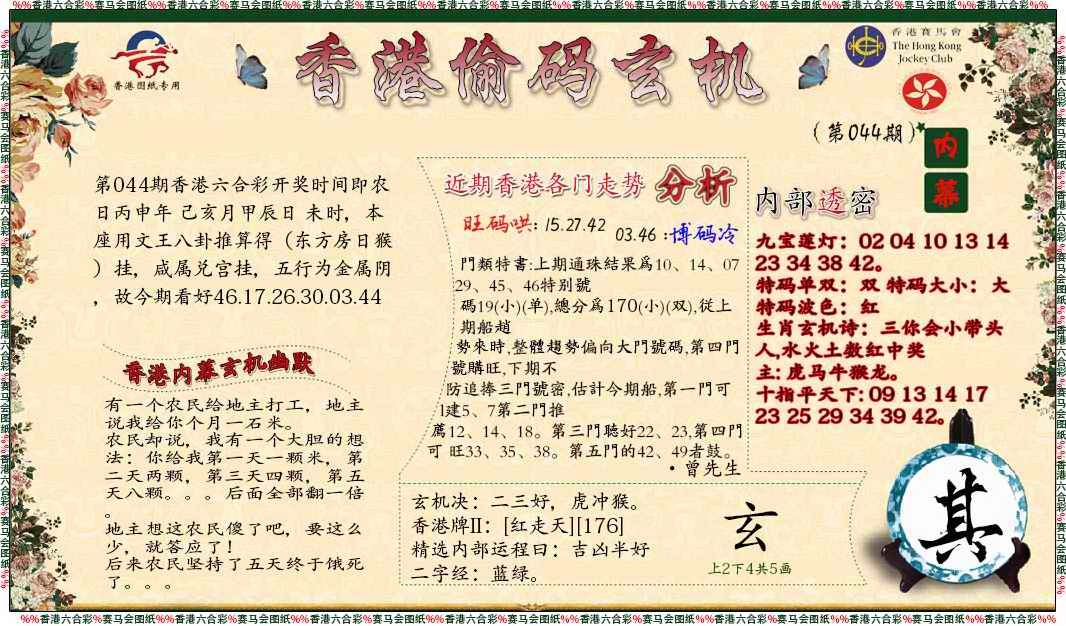 %%香港六合彩%赛马会图纸%%香港六合彩%赛马会图纸%%香港六合彩%赛马会图纸%%香港六合彩%赛马会图纸%%香港六合彩%赛马会图纸%%香港六合彩%赛马会图纸%%香港六合彩%赛马会图纸%%香港六合彩%%
香港图纸专用
香港偷码玄机
香港賽馬會
The Hong Kong
Jockey Club
(第044期)
内
幕
第044期香港六合彩开奖时间即农
日丙申年 己亥月甲辰日 未时，本
座用文王八卦推算得（东方房日猴
）挂，咸属兑宫挂，五行为金属阴
，故今期看好46.17.26.30.03.44
香港内幕玄机幽默
有一个农民给地主打工，地主
说我给你个月一石米。
农民却说，我有一个大胆的想
法：你给我第一天一颗米，第
二天两颗，第三天四颗，第五
天八颗。。。后面全部翻一倍
。
地主想这农民傻了吧，要这么
少，就答应了！
后来农民坚持了五天终于饿死
了。。。
近期香港各门走势 分析
旺码哄: 15.27.42
03.46 :博码冷
門類特書:上期通珠結果爲10、14、07
29、45、46特别號
碼19(小)(单),總分爲170(小)(双),從上
期船趙
勢來時,整體趨勢偏向大門號碼,第四門
號購旺,下期不
防追捧三門號密,估計今期船,第一門可
1建5、7第二門推
薦12、14、18。第三門聽好22、23,第四門
可 旺33、35、38。第五門的42、49者鼓。
·曾先生
玄机决：二三好，虎冲猴。
香港牌II：[红走天][176]
精选内部运程曰：吉凶半好
二字经：蓝绿。
玄
上2下4共5画
内部透密
九宝莲灯：02 04 10 13 14
23 34 38 42。
特码单双：双 特码大小：大
特码波色：红
生肖玄机诗：三你会小带头
人,水火土数红中奖
主: 虎马牛猴龙。
十指平天下: 09 13 14 17
23 25 29 34 39 42。
其
%%香港六合彩%赛马会图纸%%香港六合彩%赛马会图纸%%香港六合彩%赛马会图纸%%香港六合彩%赛马会图纸%%香港六合彩%赛马会图纸%%香港六合彩%赛马会图纸%%香港六合彩%赛马会图纸%%香港六合彩%%